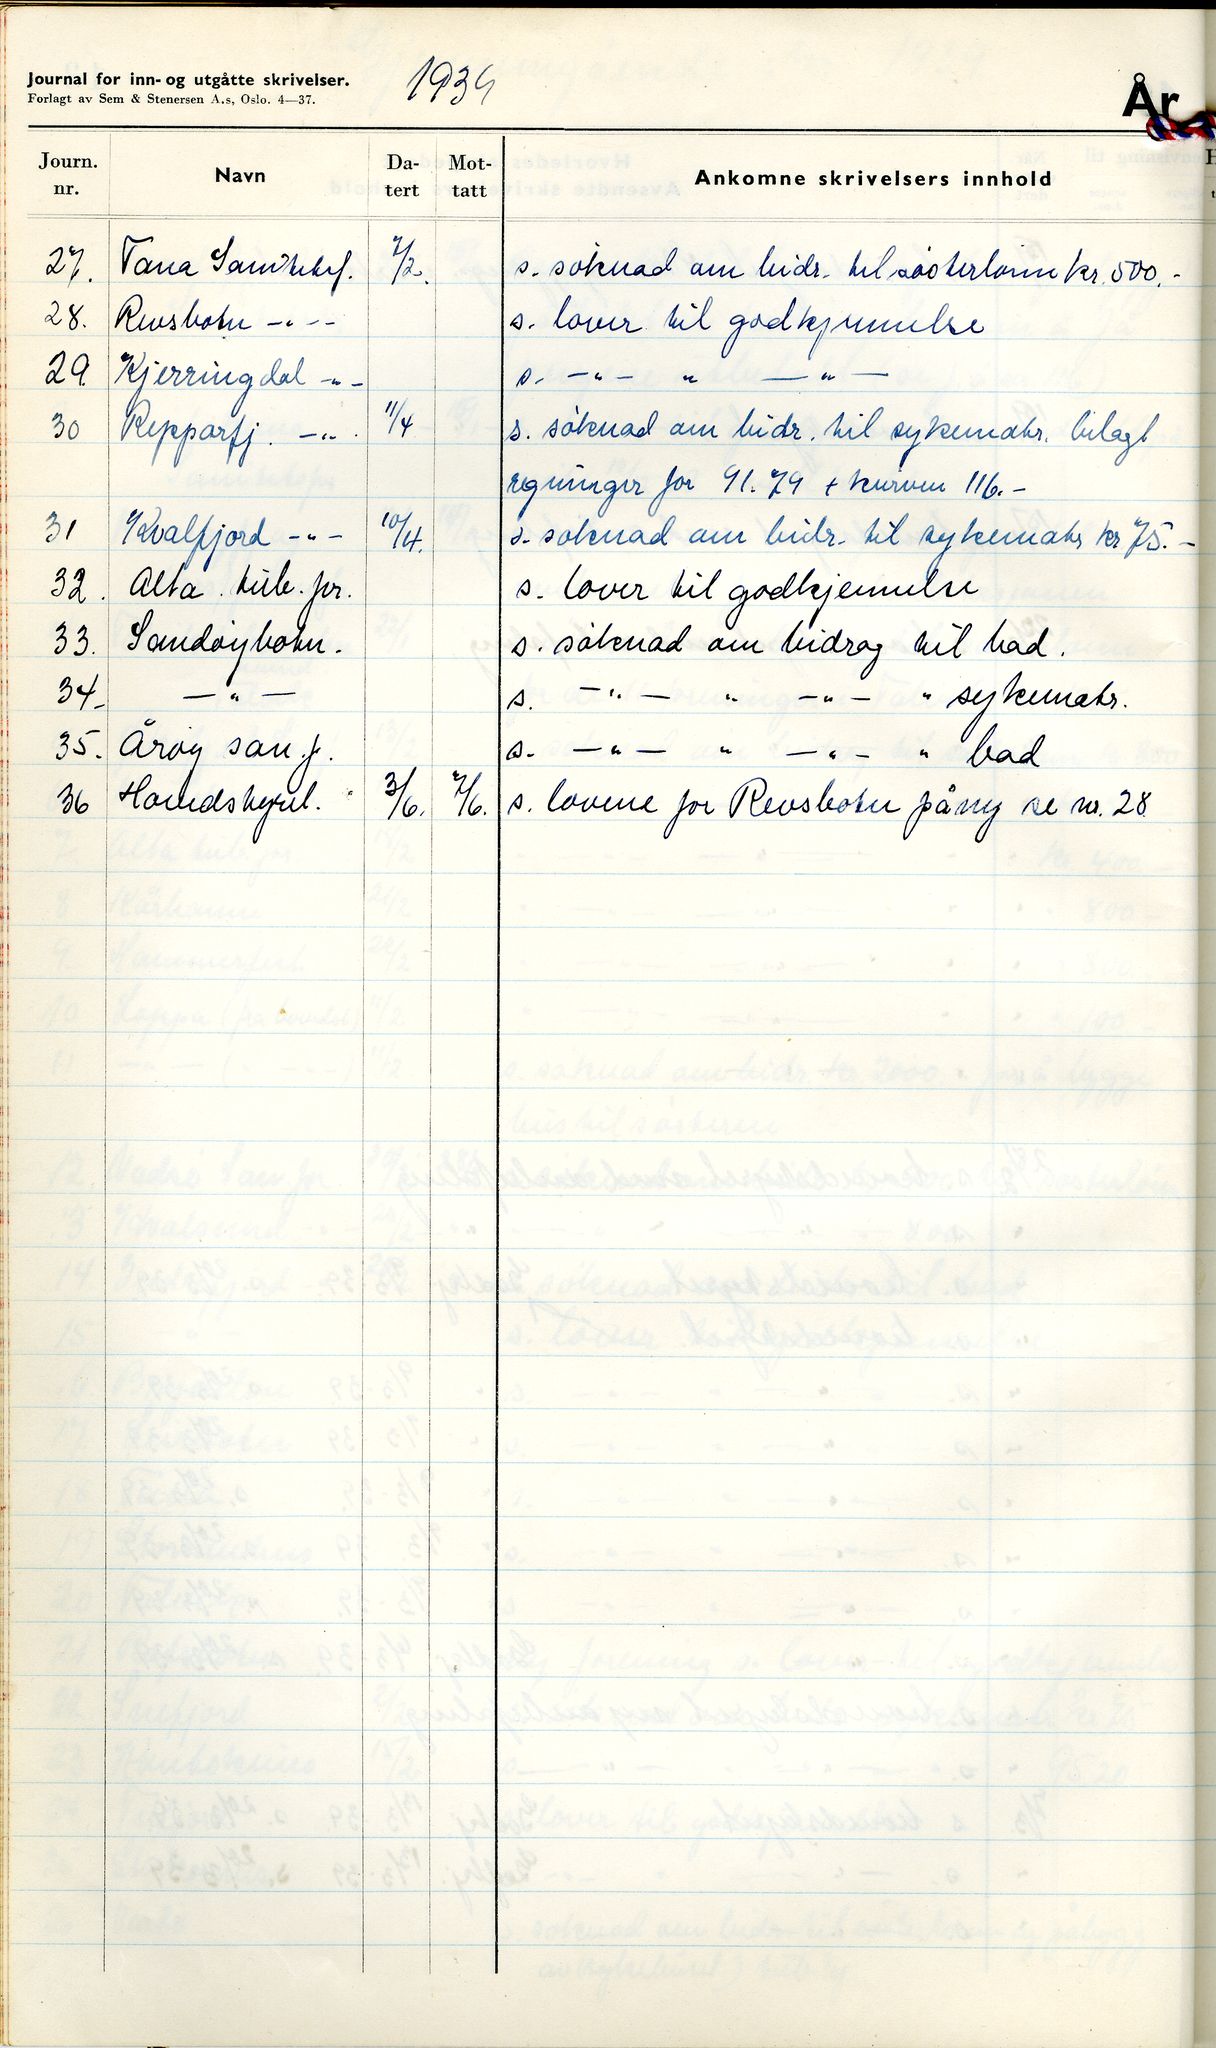 Journal for inn- og utgåtte skrivelser.
Forlagt av Sem & Stenersen A.s, Oslo. 4—37.
1939
År
Journ. nr. Navn Da-tert Mot-tatt Ankomne skrivelsers innhold
27. Tana 7/2. s. söknad om bidr. til sösterlönn kr. 500.-
28. Revsbotn -"- s. lover til godkjennelse
29. Kjerringdal -"- s. -"- " -"-
30 Repparfj. -"- 11/4 s. söknad om bidr. til sykematr. bilagt
regninger for 91.79 + kurven 116.-
31 Kvalfjord -"- 10/4. s. söknad om bidr. til sykematr kr 75.-
32. Alta tub. for. s. lover til godkjennelse
33. Sandöybotn. s. söknad om bidrag til bad.
34- -"- s. -"- " -"- " sykematr.
35. Åröy san. f. s. -"- " -"- " bad
36 Hovedstyret. 3/6. 7/6. s. lovene for Revsbotn påny se nr. 28